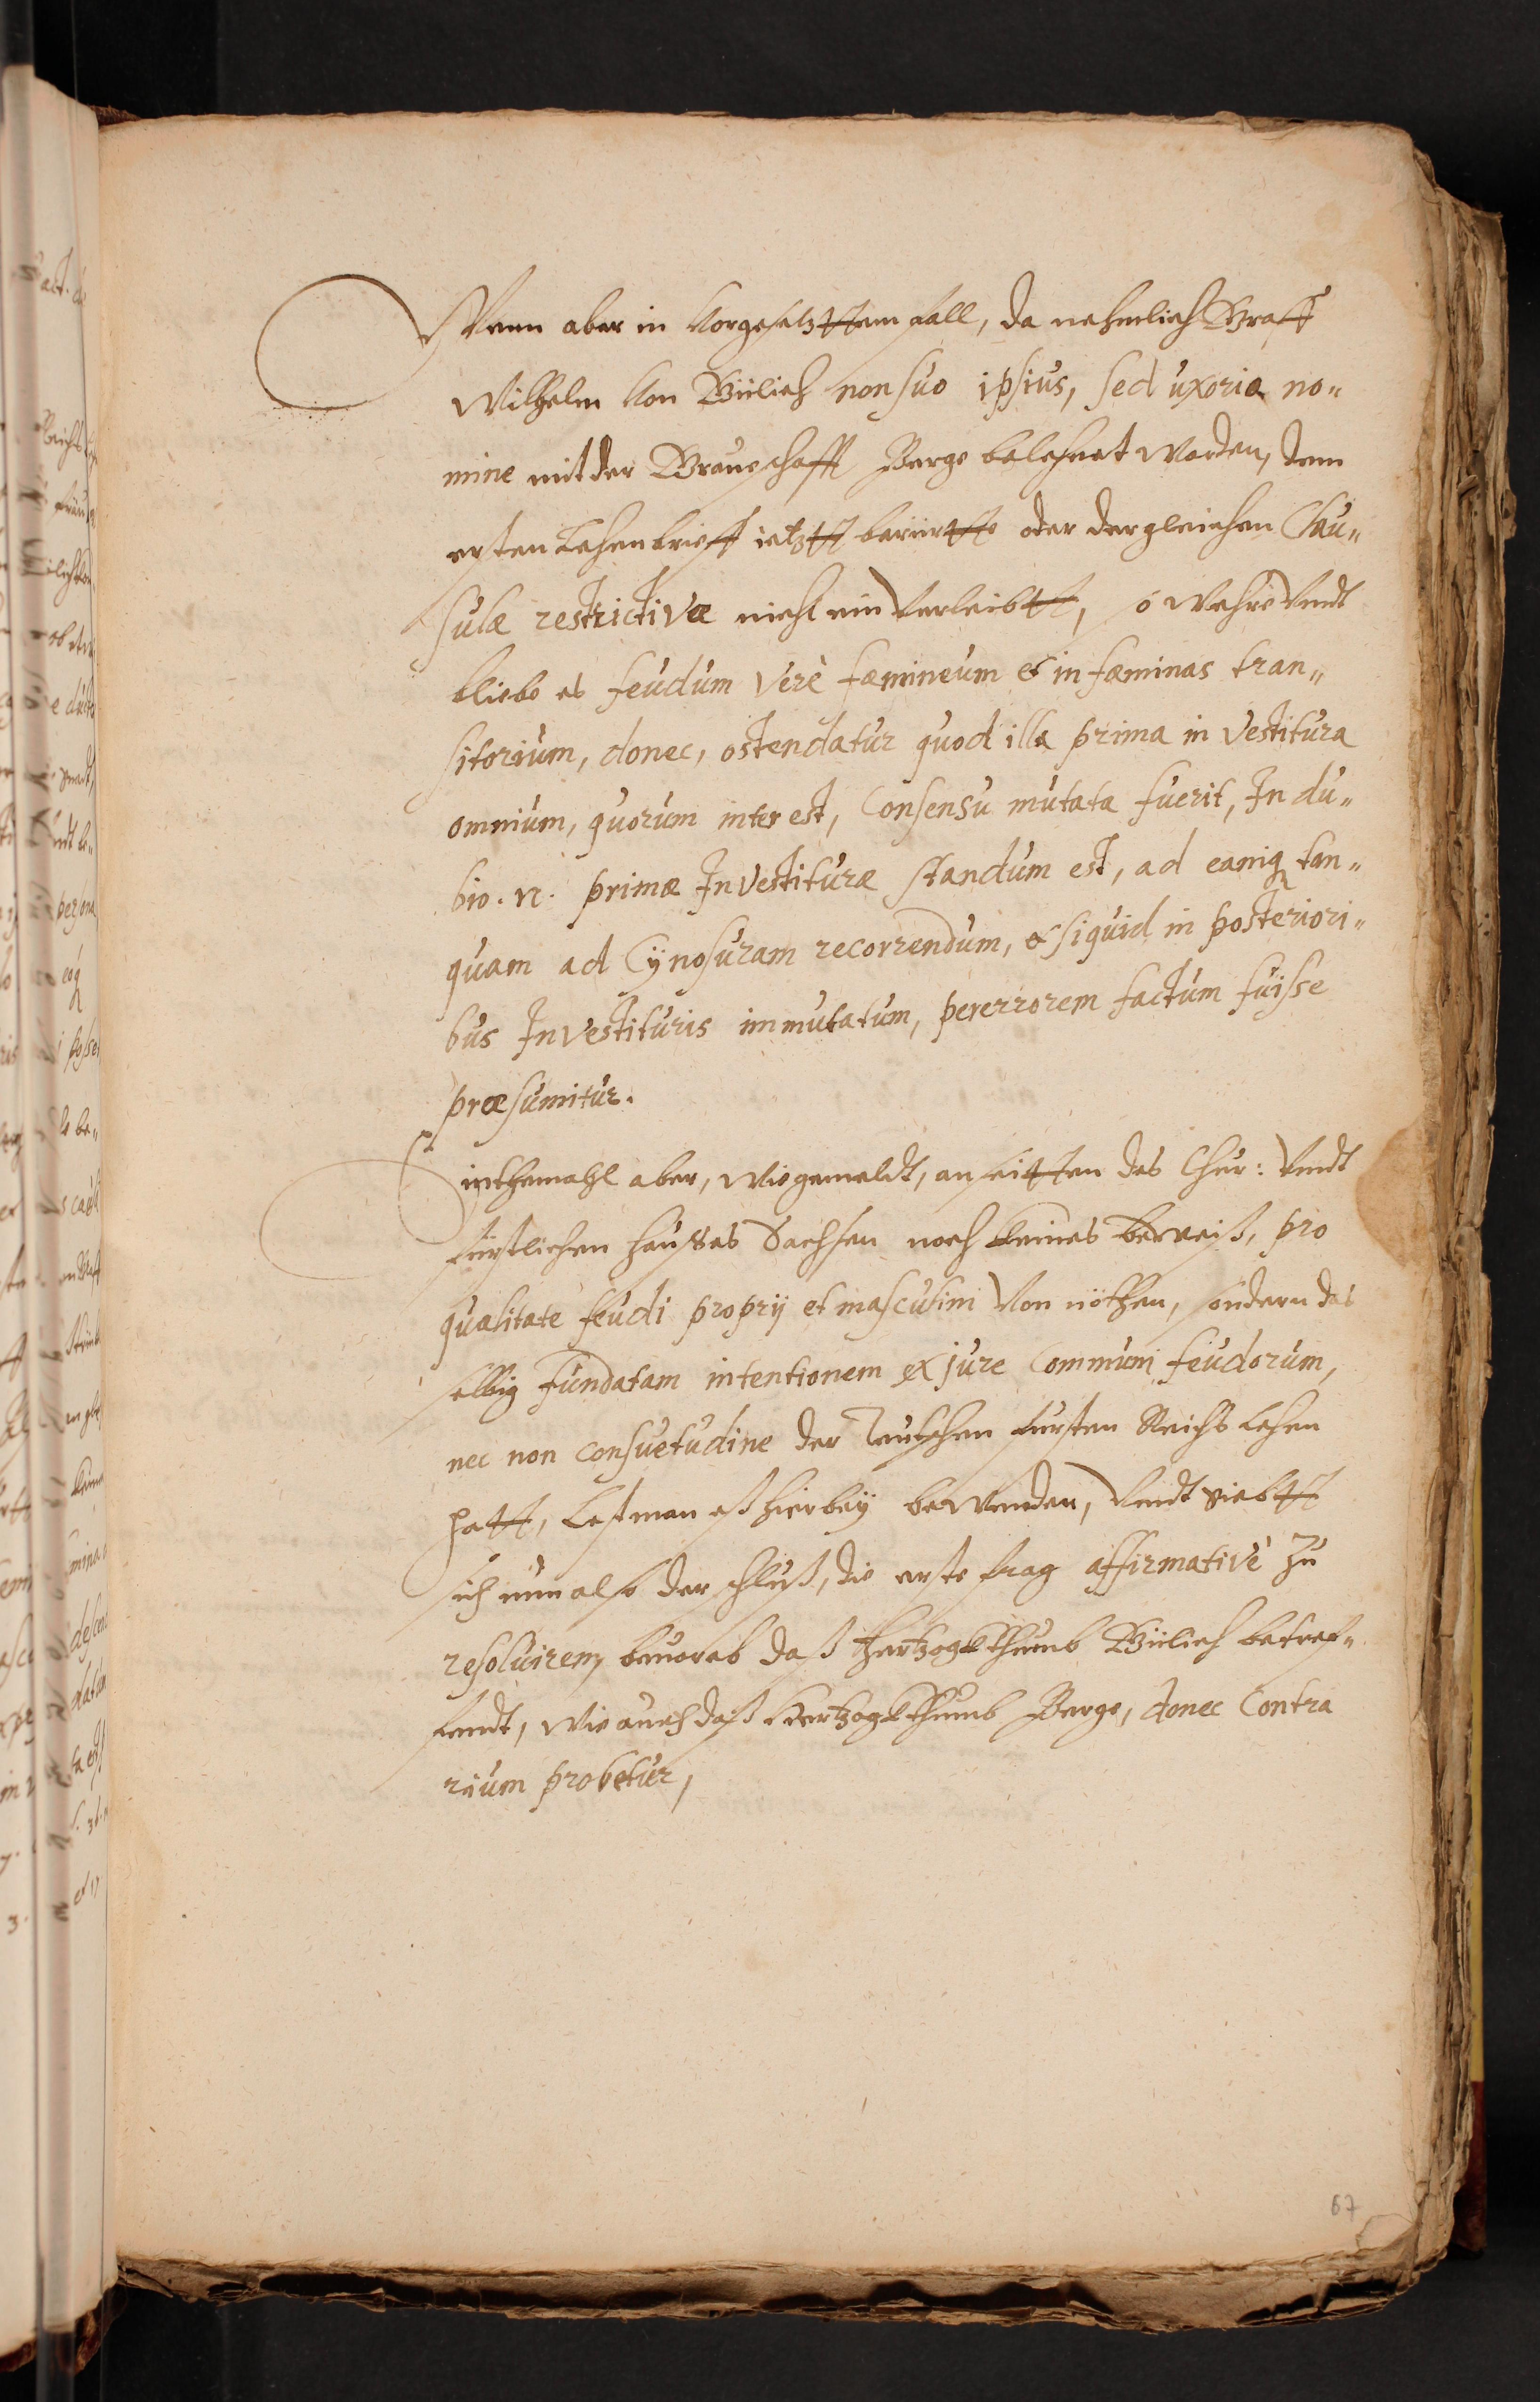 Wenn aber in Vorgesatzttem fall, da nehmlich Graff
Wilhelm Von Gülich non suo ipsius, sed uxoria no„
mine mit der Graueschafft Berge belehnet worden, dem
ersten Lehenbrieff ietztt berürtte oder dergleichen Clau„
sulæ restrictivæ nicht ein Verleibtt, so wehre Vndt
bliebe es feudum verè fæmineum et in fæminas tran„
sitorium, donec, ostendatur quod illa prima in vestitura
omnium, quorum inter est, Consensu mutata fuerit, In du„
bio. n. primæ Investituræ standum est, ad eamq tan„
quam ad Cÿnosuram recorrendum, et siquid in posteriori„
bus Investituris immutatum, per errorem factum fuisse
præsumitur.
Sinthemahl aber, wie gemeldt, an seitten des Chur: Vndt
fürstlichen Hausses Sachsen noch keines beweiß, pro
qualitate feudi proprÿ et masculini Von nöthen, sondern das
selbig fundatam intentionem ex jure Communi feudorum,
nec non consuetudine der Teutschen fursten Reichs Lehen
hatt, Lest man eß hierbeÿ bewenden, Vndt giebtt
sich nun also der schluß, die erste frag affirmativè zu
resoluiren, beuorab daß Hertzogkthumb Gülich betref„
fendt, wie auch daß Hertzogkthumb Berge, donec Contra
rium probetur,
67